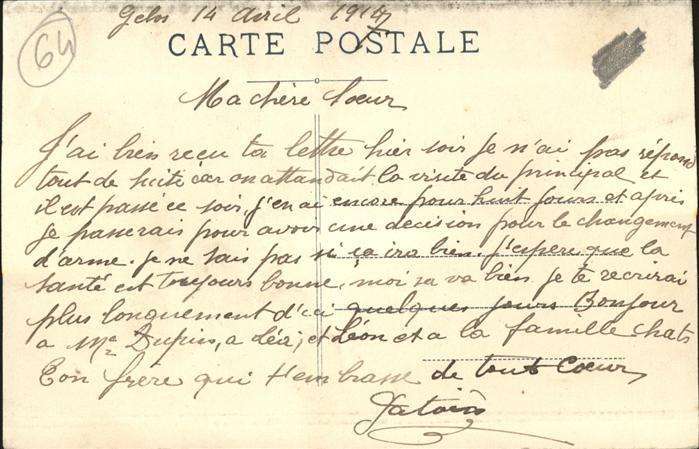 64
Gelos 14 Avril 1917
CARTE POSTALE
Ma chère Sœur
J'ai bien reçu ta lettre hier soir je n'ai pas répond
tout de suite car on attandait la visite du principal et
il est passé ce soir, j'en ai encore pour huit jours et après
je passerais pour avoir une décision pour le changement
d'arme. je ne sais pas si ça ira bien. J'espère que la
santé est toujours bonne, moi sa va bien je te recrirai
plus longuement d'ici quelques jours Bonjour
a Me Dupin, a Léa, et Léon et a la famille chats
Ton frère qui t'embrasse de tout Cœur